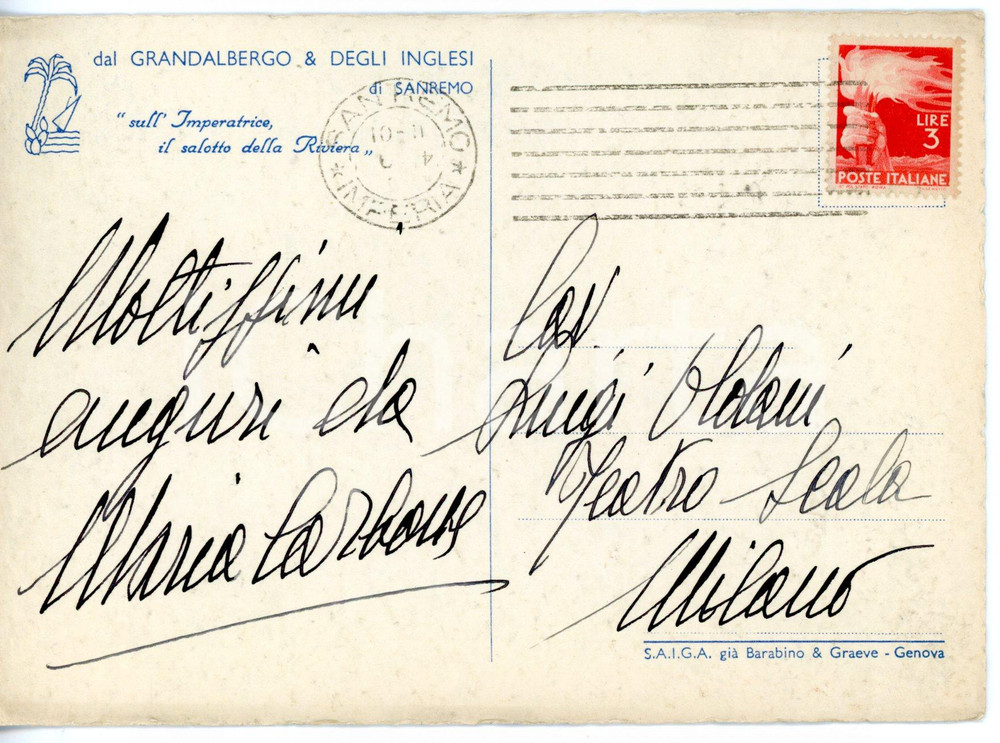 dal GRANDALBERGO & DEGLI INGLESI
di SANREMO
"sull' Imperatrice,
il salotto della Riviera„
SAN REMO
IMPERIA
LIRE
3
POSTE ITALIANE
Moltissimi
auguri da
Maria Carbone
Cav.
Luigi Oldani
Teatro Scala
Milano
S.A.I.G.A. già Barabino & Graeve - Genova